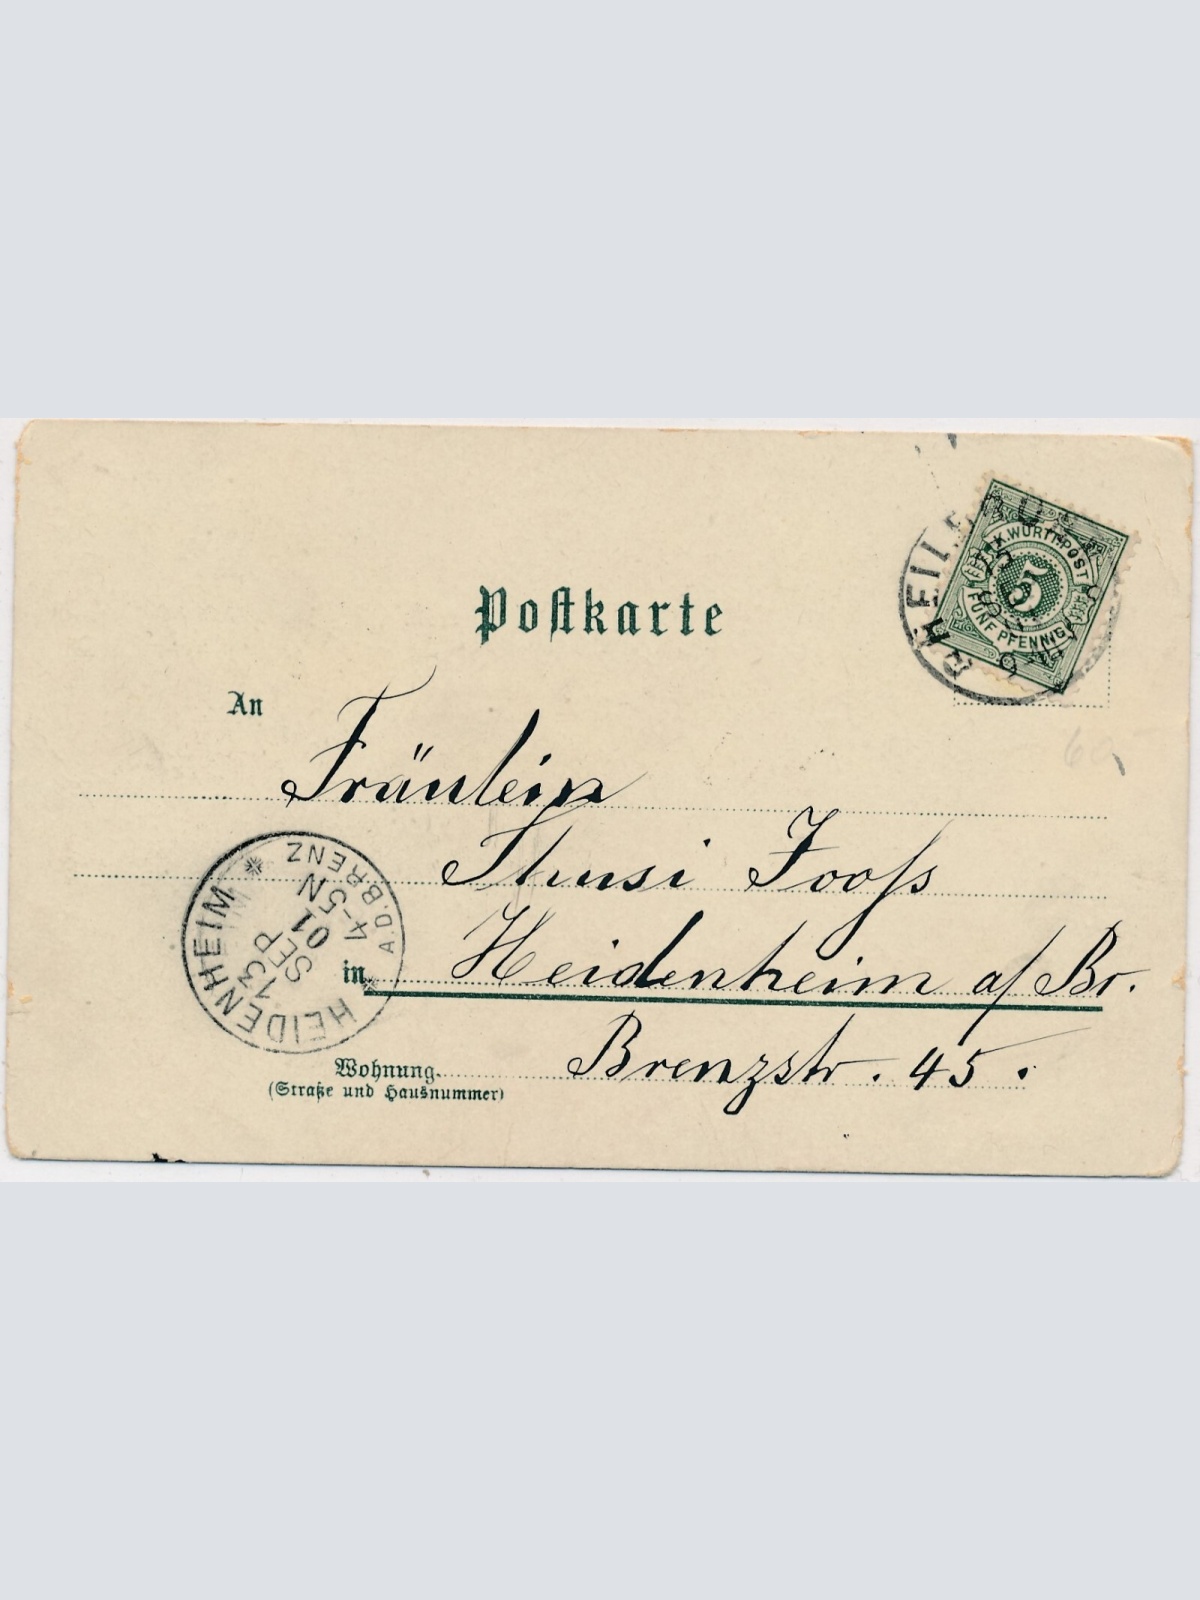 Postkarte
K. WÜRTT. POST
5
FÜNF PFENNIG
An
Fräulein
Thusi Jooss
in Heidenheim a/ Br.
Wohnung Brenzstr. 45.
(Straße und Hausnummer)
HEIDENHEIM
A.D.BRENZ
13
SEP
01
4-5N
HEIDENHEIM